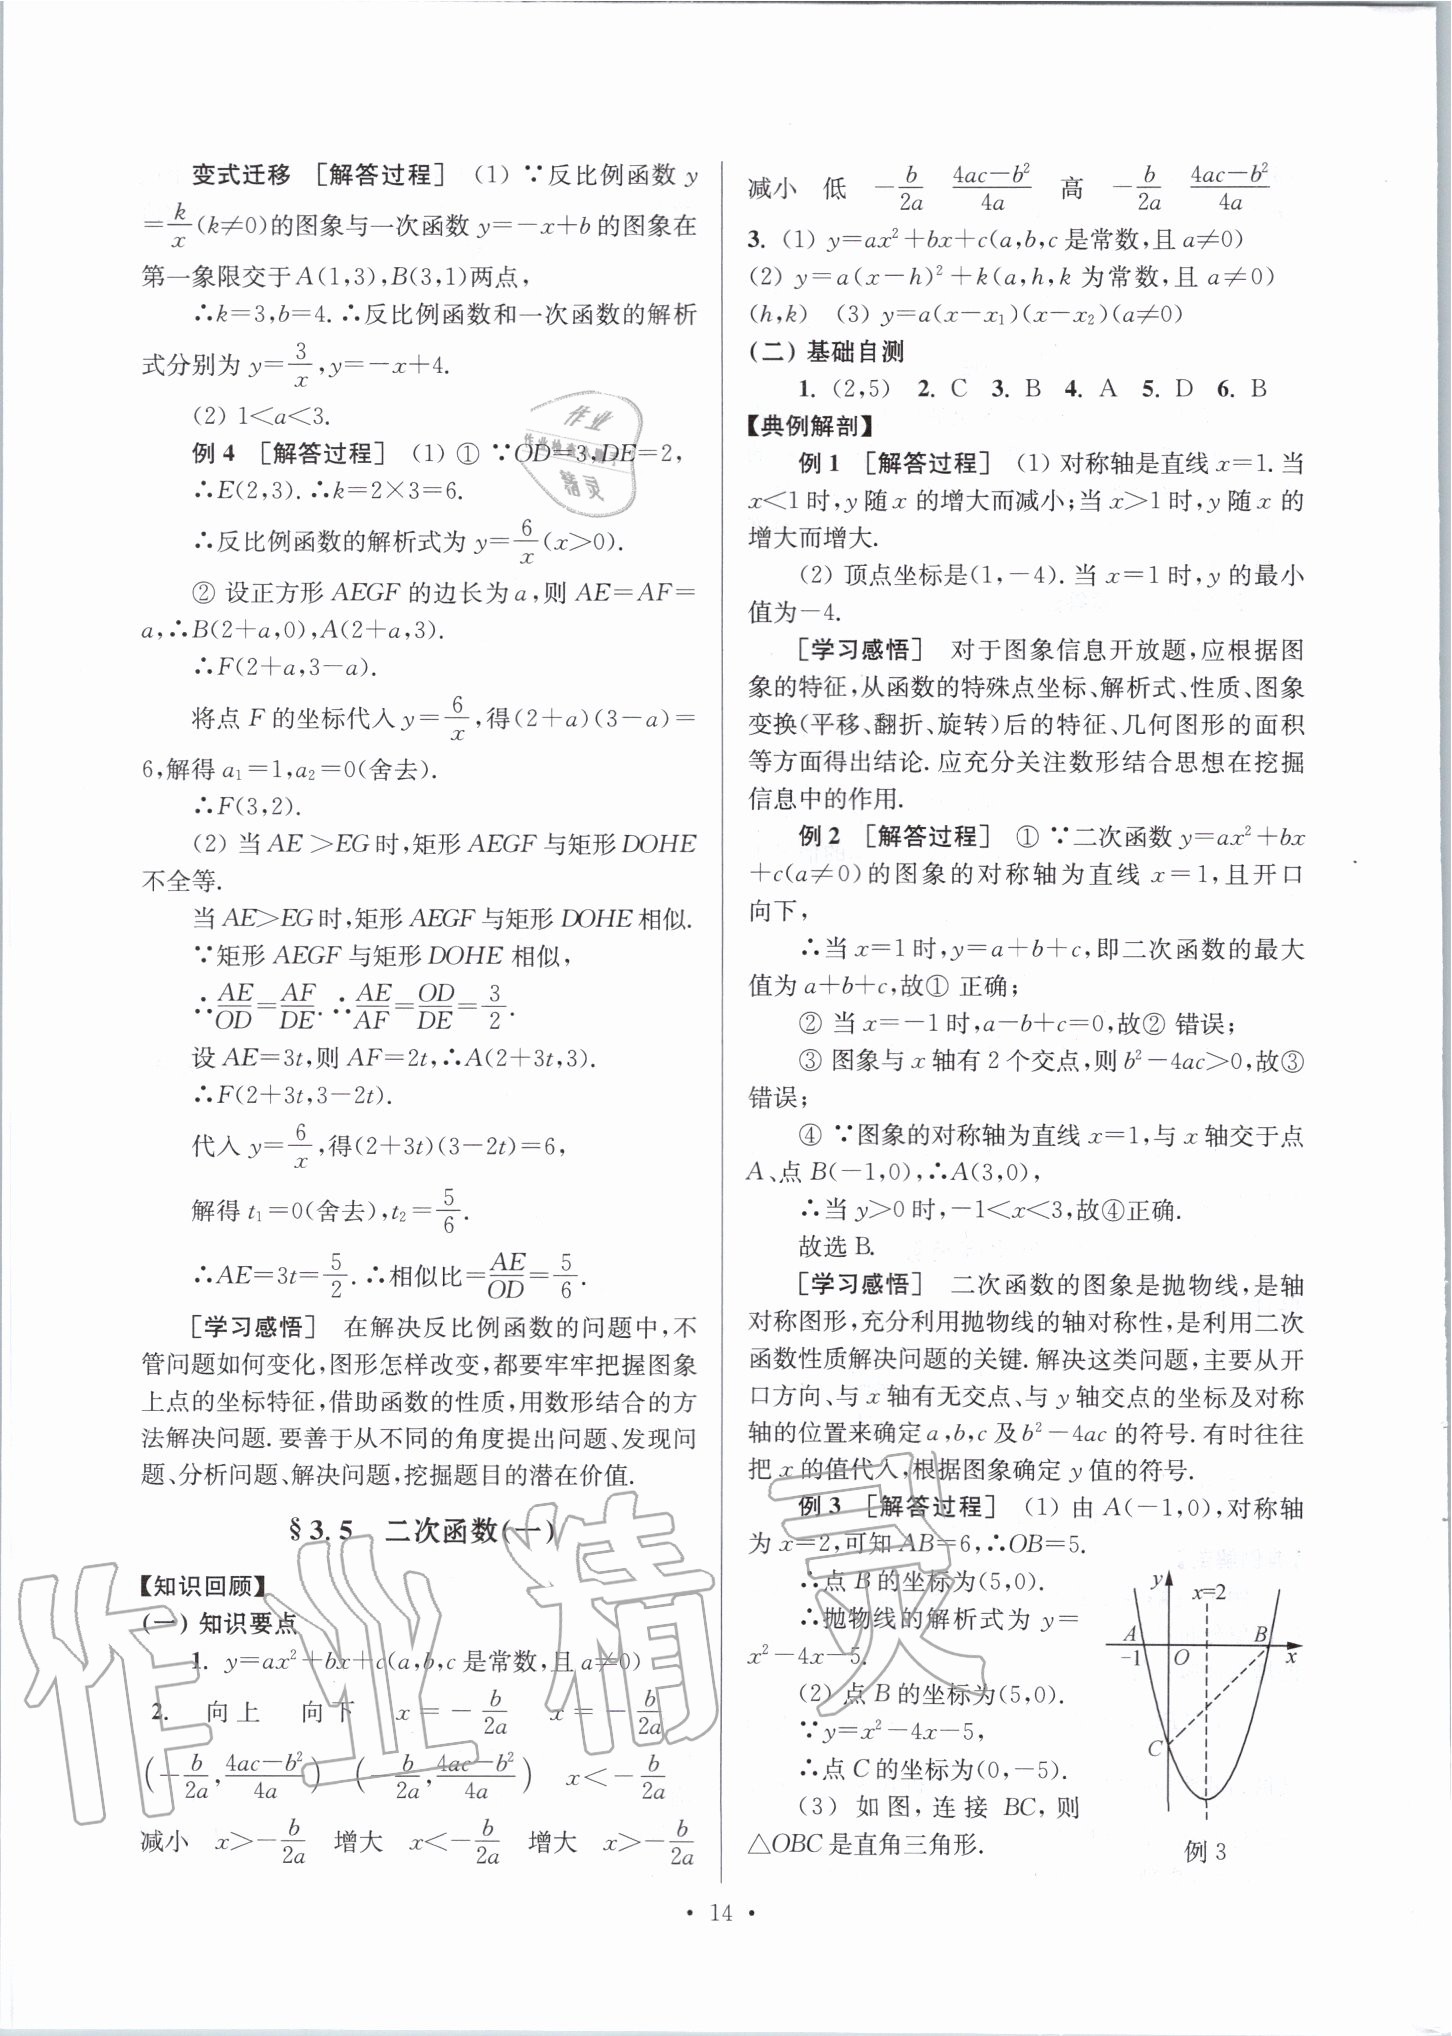 变式迁移 [解答过程] (1) ∵反比例函数 y
=k/x(k≠0)的图象与一次函数 y=-x+b 的图象在
第一象限交于 A(1,3),B(3,1)两点,
∴k=3,b=4. ∴反比例函数和一次函数的解析
式分别为 y=3/x,y=-x+4.
(2) 1<a<3.
例 4 [解答过程] (1) ① ∵OD=3,DE=2,
∴E(2,3). ∴k=2×3=6.
∴反比例函数的解析式为 y=6/x(x>0).
② 设正方形 AEGF 的边长为 a,则 AE=AF=
a,∴B(2+a,0),A(2+a,3).
∴F(2+a,3-a).
将点 F 的坐标代入 y=6/x,得(2+a)(3-a)=
6,解得 a₁=1,a₂=0(舍去).
∴F(3,2).
(2) 当 AE>EG 时,矩形 AEGF 与矩形 DOHE
不全等.
当 AE>EG 时,矩形 AEGF 与矩形 DOHE 相似.
∵矩形 AEGF 与矩形 DOHE 相似,
∴AE/OD=AF/DE. ∴AE/AF=OD/DE=3/2.
设 AE=3t,则 AF=2t,∴A(2+3t,3).
∴F(2+3t,3-2t).
代入 y=6/x,得(2+3t)(3-2t)=6,
解得 t₁=0(舍去),t₂=5/6.
∴AE=3t=5/2. ∴相似比=AE/OD=5/6.
[学习感悟] 在解决反比例函数的问题中,不
管问题如何变化,图形怎样改变,都要牢牢把握图象
上点的坐标特征,借助函数的性质,用数形结合的方
法解决问题. 要善于从不同的角度提出问题、发现问
题、分析问题、解决问题,挖掘题目的潜在价值.
§3.5 二次函数(一)
【知识回顾】
(一) 知识要点
1. y=ax²+bx+c(a,b,c 是常数,且 a≠0)
2. 向上 向下 x=-b/2a x=-b/2a
(-b/2a,4ac-b²/4a) (-b/2a,4ac-b²/4a) x<-b/2a
减小 x>-b/2a 增大 x<-b/2a 增大 x>-b/2a
减小 低 -b/2a 4ac-b²/4a 高 -b/2a 4ac-b²/4a
3. (1) y=ax²+bx+c(a,b,c 是常数,且 a≠0)
(2) y=a(x-h)²+k(a,h,k 为常数,且 a≠0)
(h,k) (3) y=a(x-x₁)(x-x₂)(a≠0)
(二) 基础自测
1. (2,5) 2. C 3. B 4. A 5. D 6. B
【典例解剖】
例 1 [解答过程] (1) 对称轴是直线 x=1. 当
x<1 时,y 随 x 的增大而减小;当 x>1 时,y 随 x 的
增大而增大.
(2) 顶点坐标是(1,-4). 当 x=1 时,y 的最小
值为-4.
[学习感悟] 对于图象信息开放题,应根据图
象的特征,从函数的特殊点坐标、解析式、性质、图象
变换(平移、翻折、旋转)后的特征、几何图形的面积
等方面得出结论. 应充分关注数形结合思想在挖掘
信息中的作用.
例 2 [解答过程] ① ∵二次函数 y=ax²+bx
+c(a≠0)的图象的对称轴为直线 x=1,且开口
向下,
∴当 x=1 时,y=a+b+c,即二次函数的最大
值为 a+b+c,故① 正确;
② 当 x=-1 时,a-b+c=0,故② 错误;
③ 图象与 x 轴有 2 个交点,则 b²-4ac>0,故③
错误;
④ ∵图象的对称轴为直线 x=1,与 x 轴交于点
A、点 B(-1,0),∴A(3,0),
∴当 y>0 时,-1<x<3,故④正确.
故选 B.
[学习感悟] 二次函数的图象是抛物线,是轴
对称图形,充分利用抛物线的轴对称性,是利用二次
函数性质解决问题的关键. 解决这类问题,主要从开
口方向、与 x 轴有无交点、与 y 轴交点的坐标及对称
轴的位置来确定 a,b,c 及 b²-4ac 的符号. 有时往往
把 x 的值代入,根据图象确定 y 值的符号.
例 3 [解答过程] (1) 由 A(-1,0),对称轴
为 x=2,可知 AB=6,∴OB=5.
∴点 B 的坐标为(5,0).
∴抛物线的解析式为 y=
x²-4x-5.
(2) 点 B 的坐标为(5,0).
∵y=x²-4x-5,
∴点 C 的坐标为(0,-5).
(3) 如图,连接 BC,则
△OBC 是直角三角形.
y x=2
A B
-1 O x
C
例 3
• 14 •
作业
作业检查
精灵
作业精灵